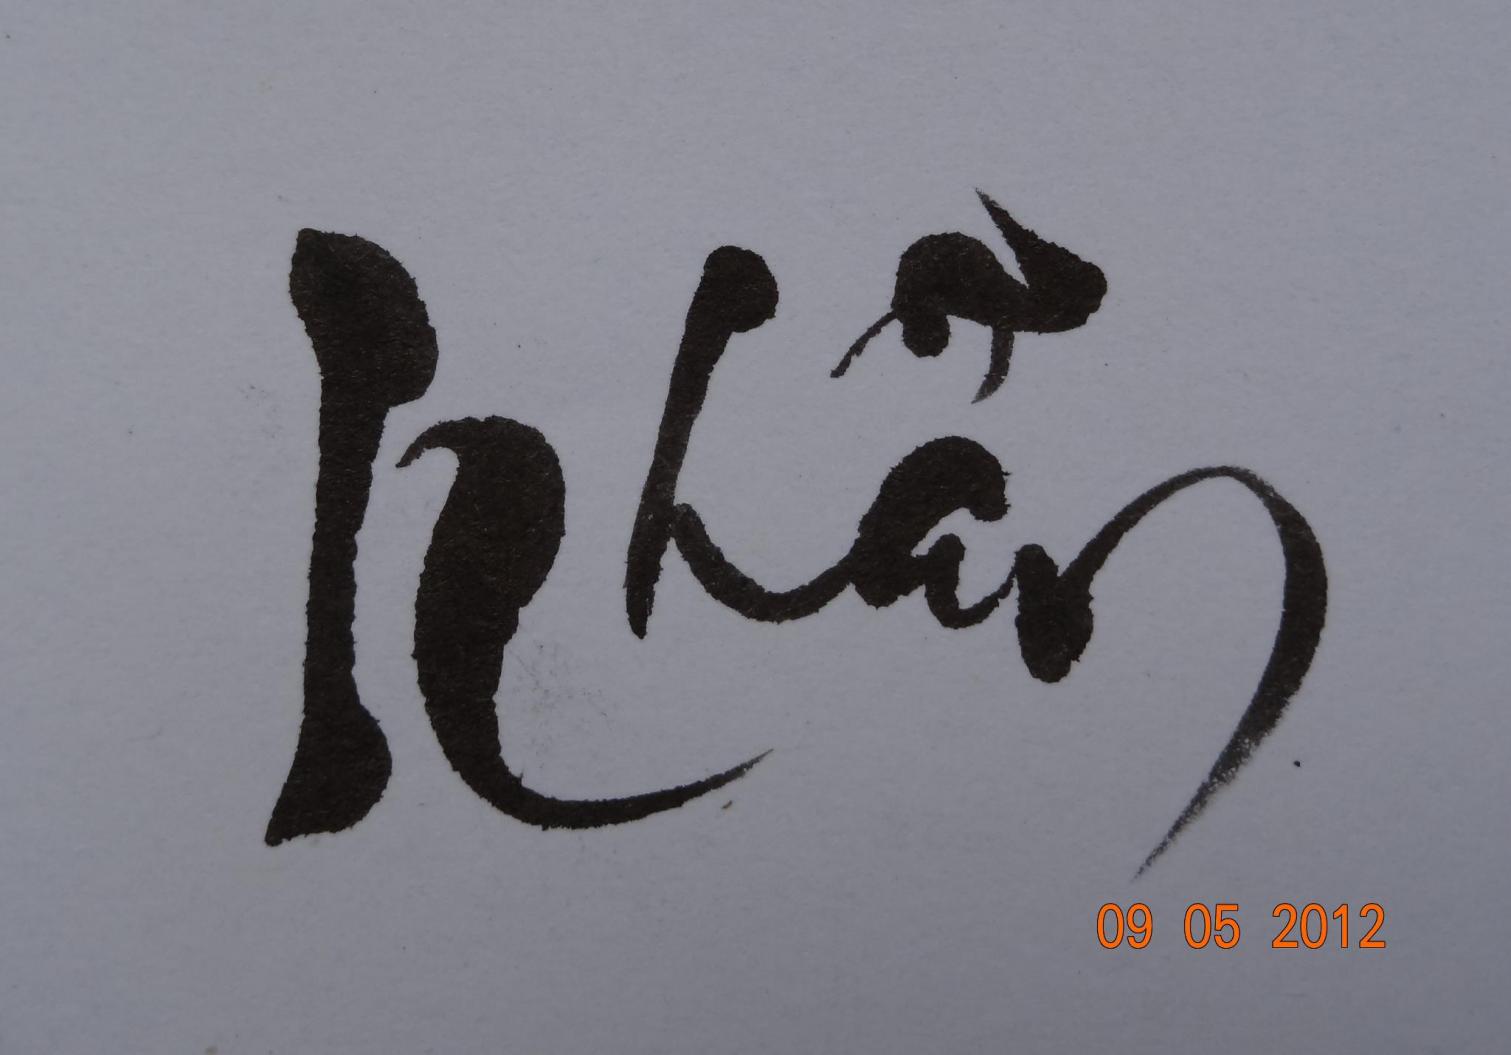 Nhẫn
09 05 2012